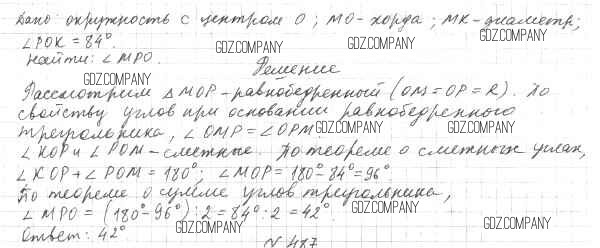 Дано: окружность с центром O; MO-хорда; MK-диаметр;
∠POK = 84°. GDZ.COMPANY GDZ.COMPANY GDZ.COMPANY
Найти: ∠MPO.
GDZ.COMPANY Решение GDZ.COMPANY
Рассмотрим △MOP-равнобедренный (OM=OP=R). По
свойству углов при основании равнобедренного
треугольника, ∠OMP=∠OPM. GDZ.COMPANY GDZ.COMPANY
∠KOP и ∠POM-смежные. По теореме о смежных углах,
∠KOP+∠POM=180°; ∠MOP=180°-84°=96°
По теореме о сумме углов треугольника,
∠MPO = (180°-96°):2=84°:2=42°. GDZ.COMPANY
Ответ: 42°. GDZ.COMPANY GDZ.COMPANY
N 487